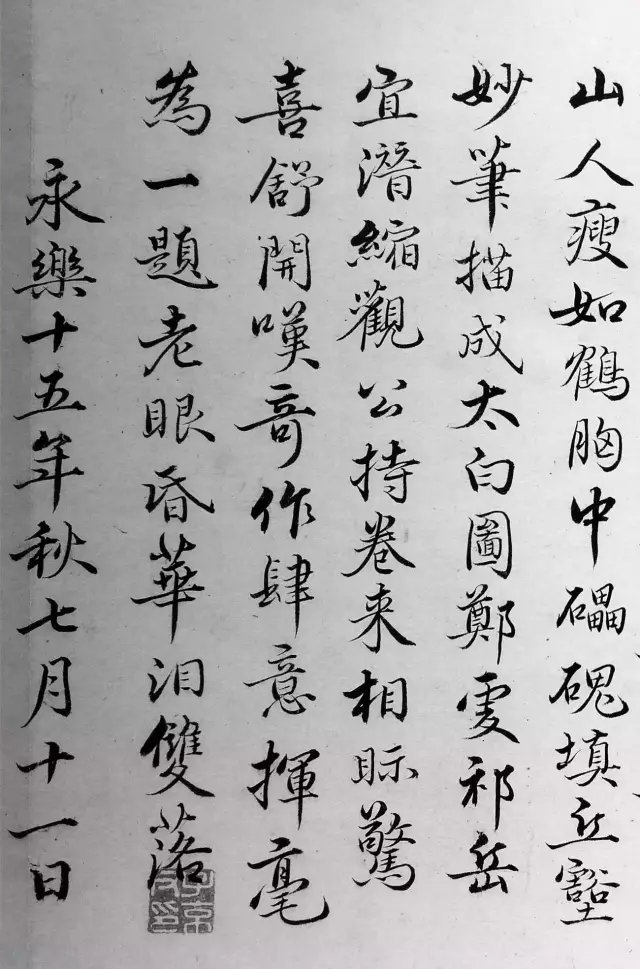 山人瘦如鶴胸中礧磈填丘壑
妙筆描成太白圖鄭虔祁岳
宜潛縮觀公持卷来相眎驚
喜舒開嘆竒作肆意揮毫
為一題老眼昏華泪雙落
永樂十五年秋七月十一日